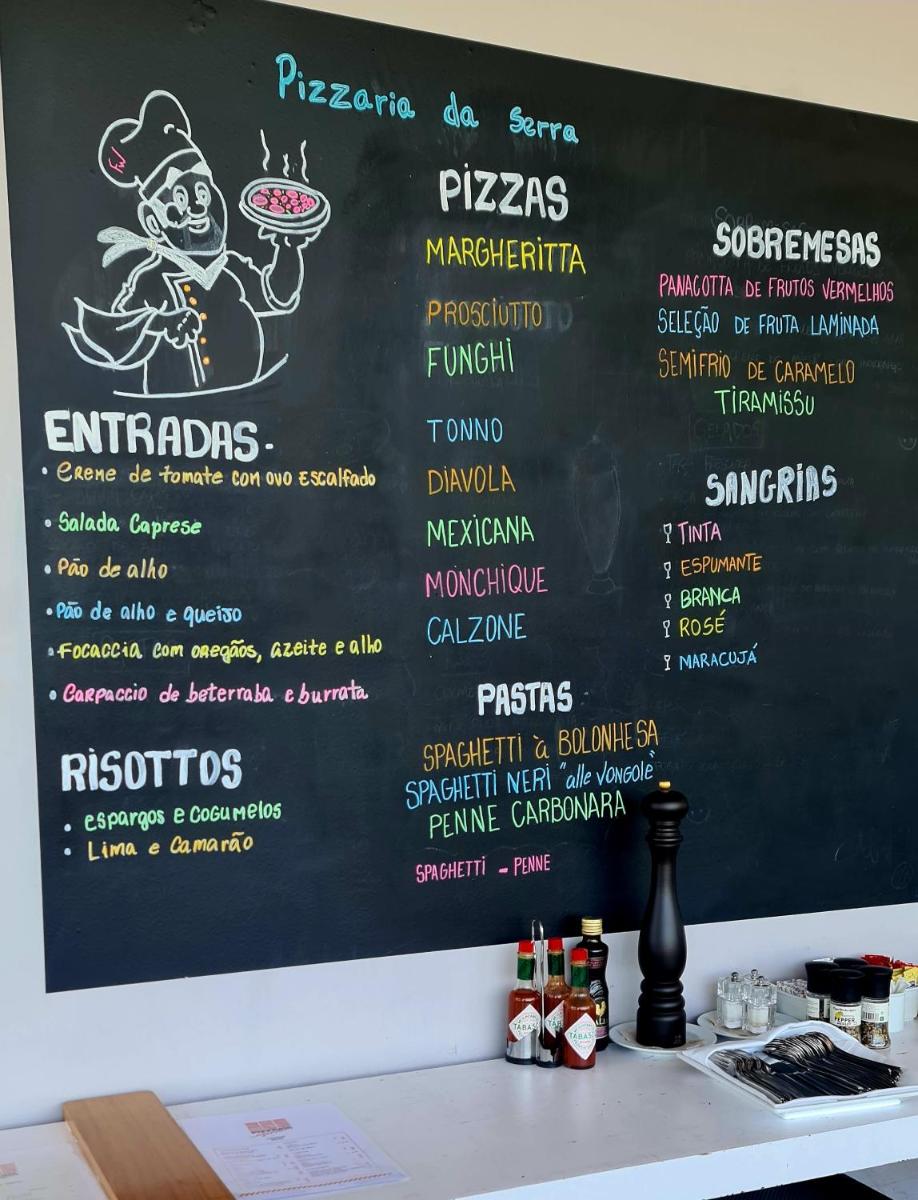 Pizzaria da Serra
ENTRADAS.
• Creme de tomate com ovo Escalfado
• Salada Caprese
• Pão de alho
• Pão de alho e queijo
• Focaccia com oregãos, azeite e alho
• Carpaccio de beterraba e burrata
RISOTTOS
• Espargos e Cogumelos
• Lima e Camarão
PIZZAS
MARGHERITTA
PROSCIUTTO
FUNGHI
TONNO
DIAVOLA
MEXICANA
MONCHIQUE
CALZONE
PASTAS
SPAGHETTI à BOLONHESA
SPAGHETTI NERI "alle Vongole"
PENNE CARBONARA
SPAGHETTI - PENNE
SOBREMESAS
PANACOTTA DE FRUTOS VERMELHOS
SELEÇÃO DE FRUTA LAMINADA
SEMIFRIO DE CARAMELO
TIRAMISSU
GELADOS
SANGRIAS
TINTA
ESPUMANTE
BRANCA
ROSÉ
MARACUJÁ
TABASCO
PEPPER